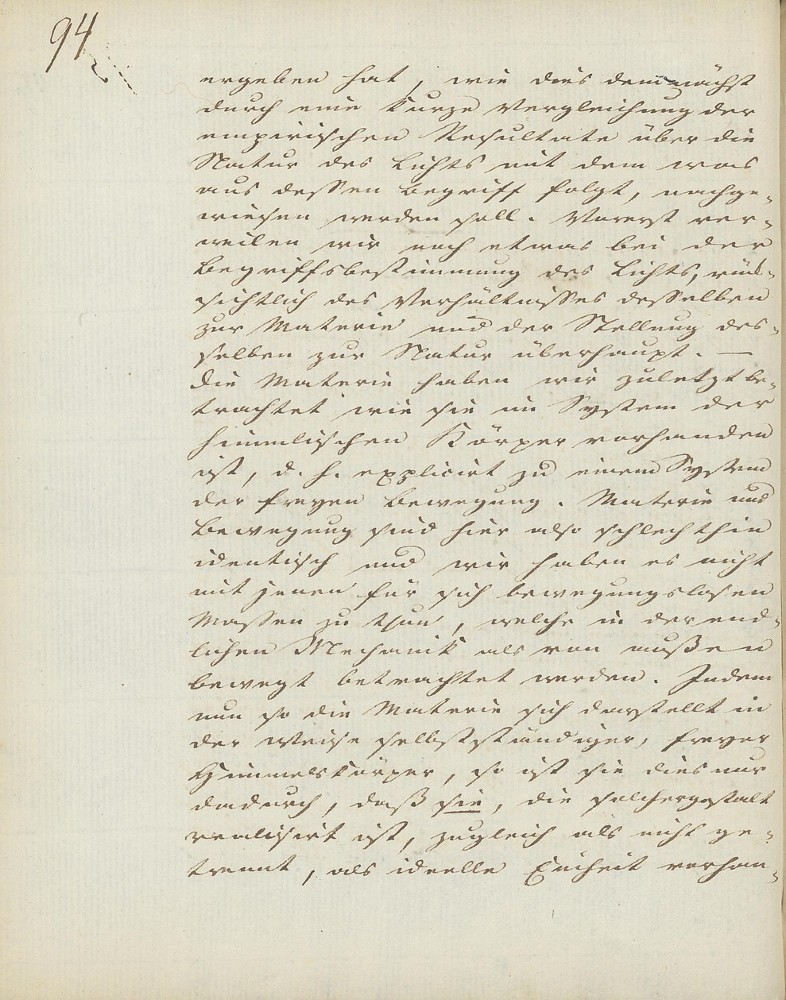 94
ergeben hat, wie dies demnächst
durch eine kurze Vergleichung der
empirischen Resultate über die
Natur des Lichts mit dem was
aus dessen Begriff folgt, nachge-
wiesen werden soll. Vorerst ver-
weilen wir noch etwas bei der
Begriffsbestimmung des Lichts, rück-
sichtlich des Verhältnisses desselben
zur Materie und der Stellung des-
selben zur Natur überhaupt. —
Die Materie haben wir zuletzt be-
trachtet wie sie im System der
himmlischen Körper vorhanden
ist, d. h. explicirt zu einem System
der freyen Bewegung. Materie und
Bewegung sind hier also schlechthin
identisch und wir haben es nicht
mit jenen für sich bewegungslosen
Massen zu thun, welche in der end-
lichen Mechanik als von außen
bewegt betrachtet werden. Indem
nun so die Materie sich darstellt in
der Weise selbstständiger, freyer
Himmelskörper, so ist sie dies nur
dadurch, daß sie, die solchergestalt
realisirt ist, zugleich als nicht ge-
trennt, als ideelle Einheit vorhan-